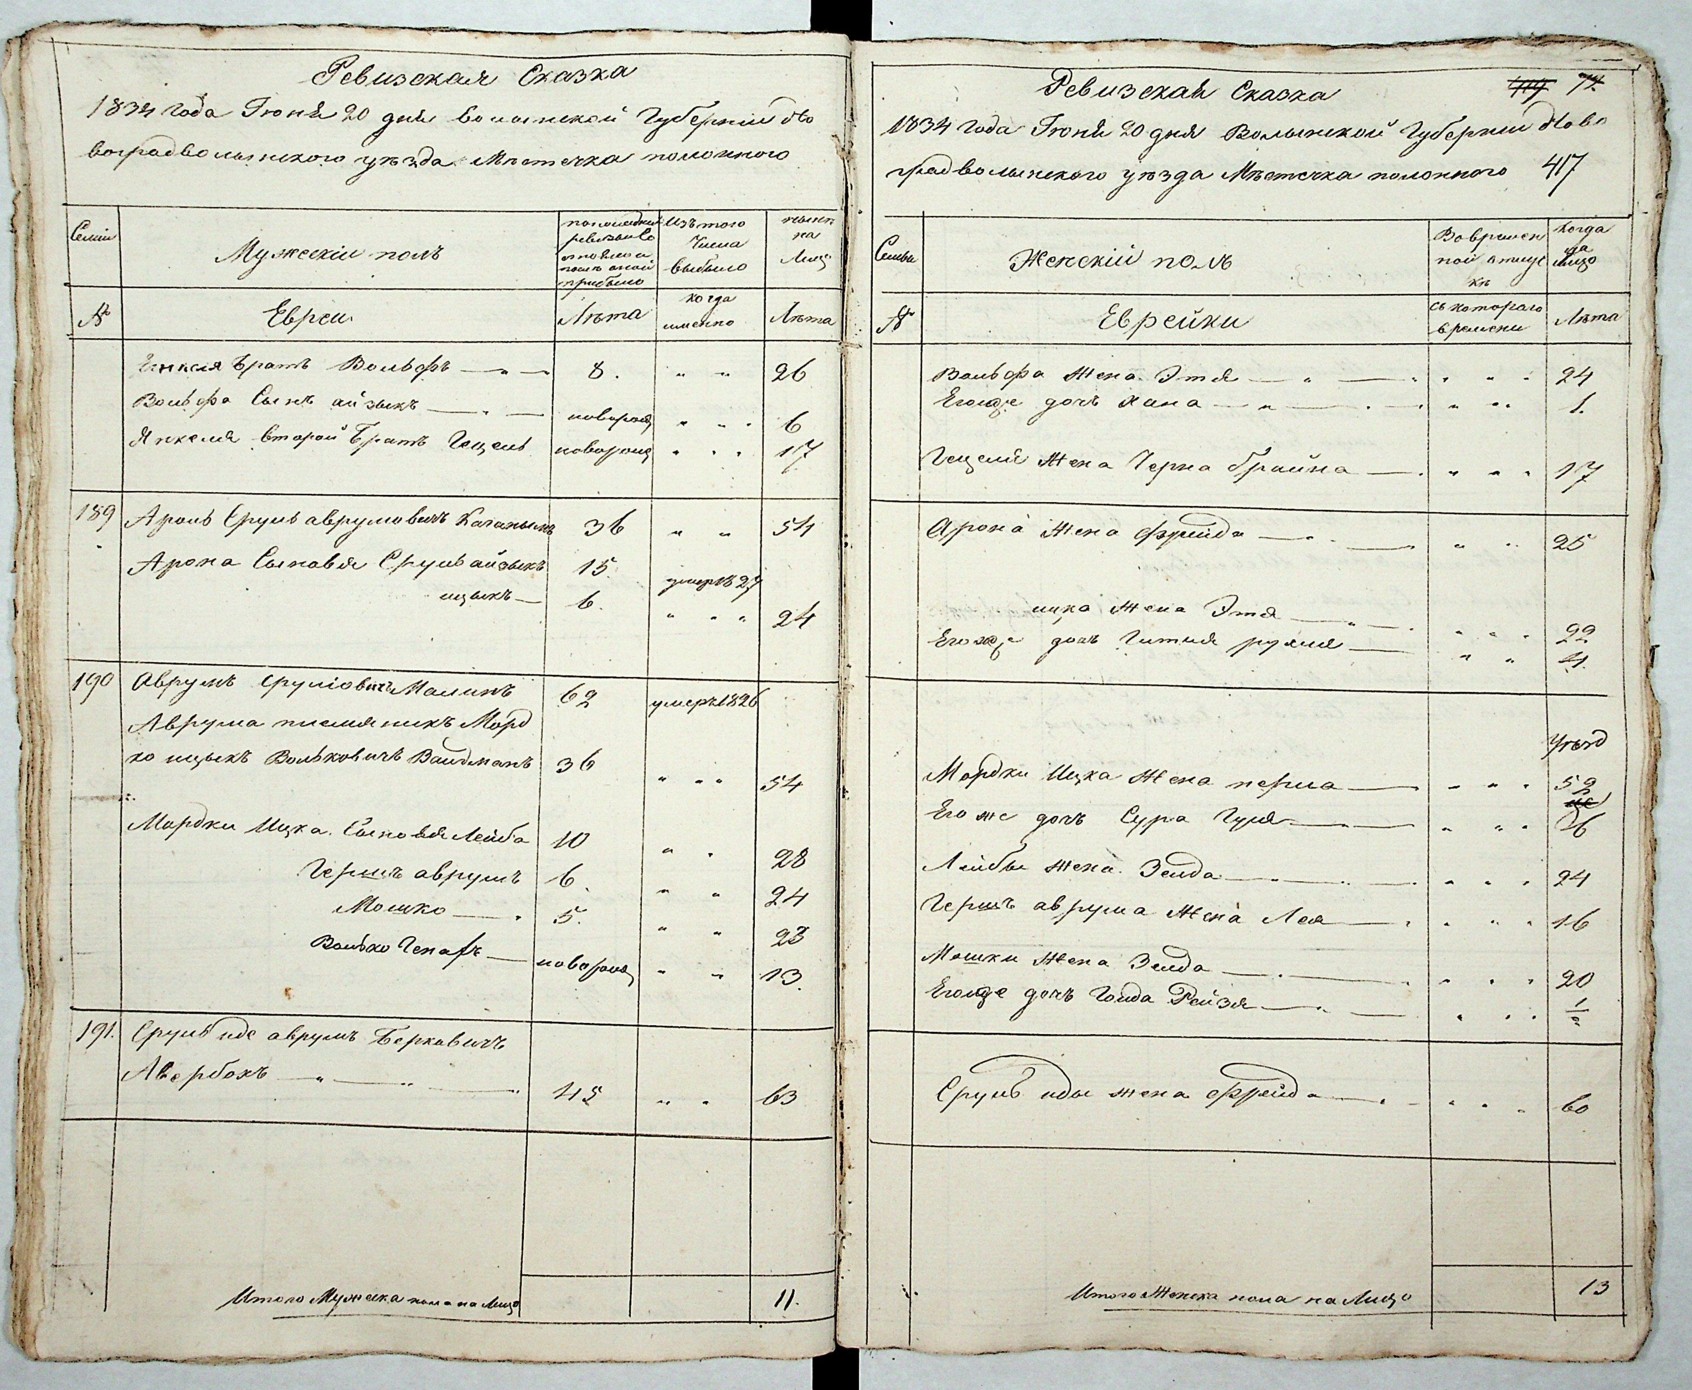 Ревизская Сказка
1834 года Іюня 20 дня волынской Губерніи Но
воградволынского уѣзда Мѣстечка полонного
Семьи
Мужескій полъ
по последней ревизіи состояло и после оной прибыло
Изъ того Числа выбыло
нынѣ на Лицо
№
Евреи
Лѣта
когда именно
Лѣта
Янкеля Братъ Вольфъ 8. 26
Вольфа Сынъ айзыкъ новорож 6
Янкеля второй Братъ Гецель новорож 17
189 Аронъ Сруль аврумовичъ 36 54
Арона Сыновья Срульайзыкъ 15. умеръ 1827
ицыкъ 6. 24
190 Аврумъ Сруліовичъ Малинъ 62 умеръ 1826
Аврума племяникъ Морд
ко ицыкъ Вольковичъ Вайдманъ 36 54
Мордки Ицка Сыновья Лейба 10 28
Гершъ аврумъ 6. 24
Мошко 5. 23
Волько новорож 13.
191. Сруль иде аврумъ Берковичъ
Авербохъ 45 63
Итого Мужеска пола на Лицо 11.
Ревизская Сказка 74
1834 года Іюня 20 дня Волынской Губерніи Ново
градволынского уѣзда Мѣстечка полонного 417
Семьи
Женскій полъ
Во времен ной отлуч кѣ
№
Еврейки
Съ котораго времени
Лѣта
Вольфа Жена Этя 24
Егоже дочь Хана 1.
Гецеля Жена Черна Брайна 17
Арона Жена Фрейда 25
ицка Жена Этя 22
Егоже дочь Гитля рухля 4.
Мордки Ицка Жена перла 52
Его же дочь Сура Гуля
Лейбы жена Зелда 24
Гершъ аврума Жена Лея 16
Мошки Жена Зелда 20
Егоже дочь Голда Рейзя 1/2
Сруль иды жена Фрейда 60
Итого Женска пола на Лицо 13